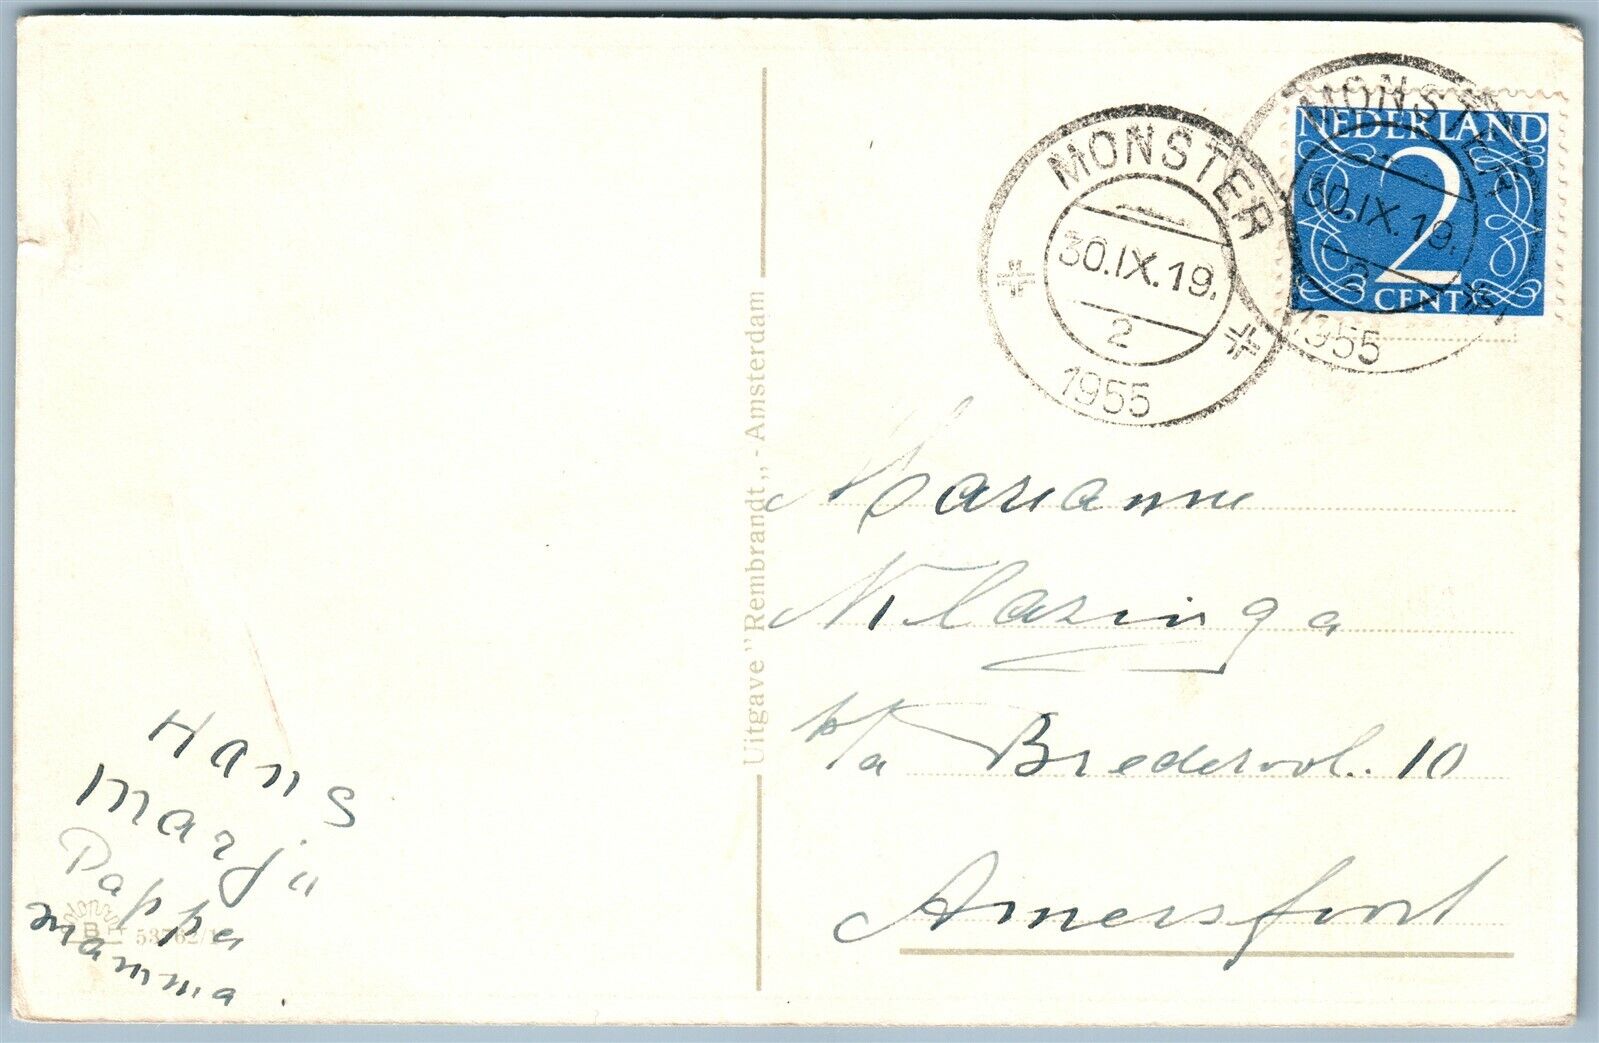 MONSTER
30.IX.19.
2
1955
MONSTER
30.IX.19.
2
1955
NEDERLAND
2
CENT
Uitgave "Rembrandt„ - Amsterdam
Marianne
Klazinga
p/a Brederol.. 10
Amersfoort
Hans
Marja
Pappa
Mamma.
B